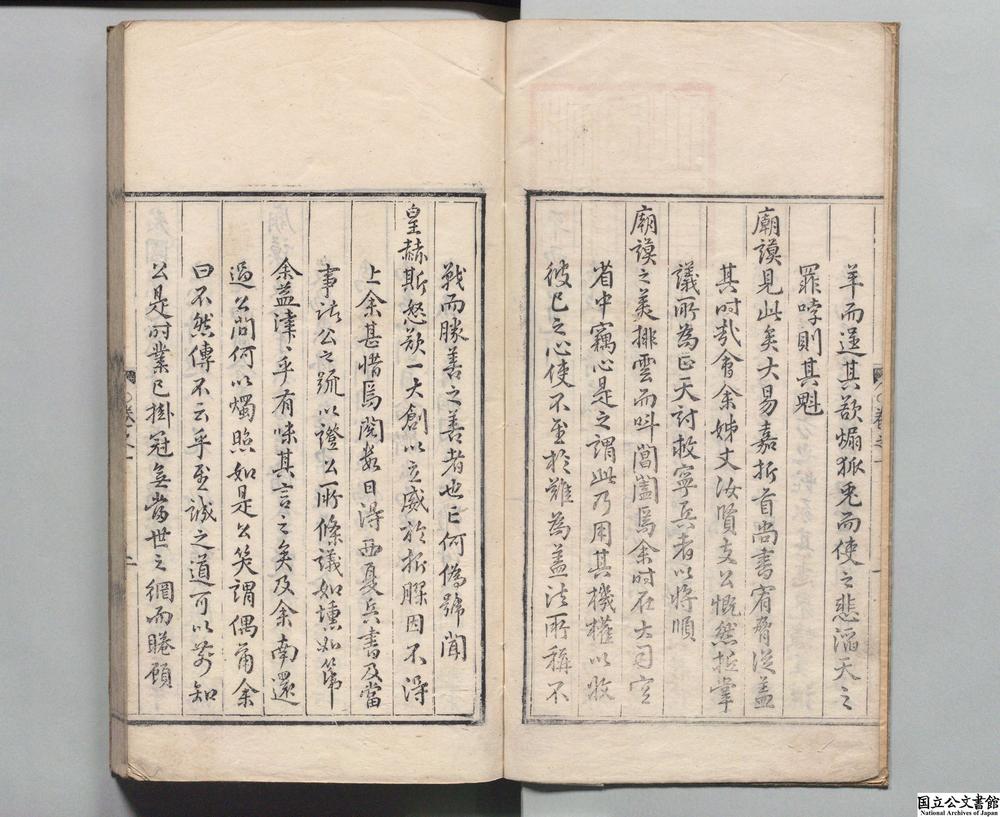 羊而逞其欲煽狐兎而使之悲滔天之
罪哱則其魁
廟謨見此矣大易嘉折首尚書宥脅從蓋
其時武會余姊丈汝賢支公慨然抵掌
議所為正天討救寧兵者以將順
廟謨之美排雲而叫閶闔焉余時在大司空
省中竊心是之謂此乃用其機權以收
彼己之心使不至於難為蓋法所稱不
戰而勝善之善者也亡何偽號聞
皇赫斯怒欲一大創以立威於折膠因不得
上余甚惜焉閱數日得西夏兵書及當
事諸公之疏以證公所條議如壎如篪
余益津々乎有味其言之矣及余南還
過公問何以燭照如是公笑謂偶爾余
曰不然傳不云乎至誠之道可以前知
公是時業已掛冠無當世之網而睠顧
卷之一
一
卷之一
二
国立公文書館
National Archives of Japan